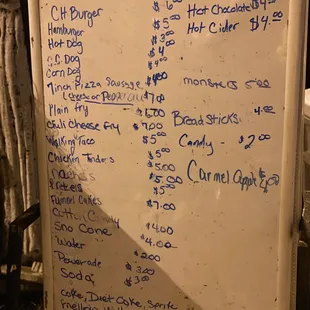 CH Burger $6⁰⁰
Hamburger $5⁰⁰
Hot Dog $3⁰⁰
C.C. Dog $4
Corn Dog $4⁰⁰
7inch Pizza Sausage, $400
(cheese or Pepperoni) $7⁰⁰
Plain fry $6.00
Chili Cheese Fry $7.00
Walking Taco $5⁰⁰
Chicken Tenders $5⁰⁰
nachos $5.00
Pretzels $5.00
Funnel Cakes $5⁰⁰
Cotton Candy $7.00
Sno Cone $4.00
Water $4.00
Powerade $2.00
Soda $3⁰⁰
$3⁰⁰
Coke, Diet Coke, Sprite
mellow
Hot Chocolate $4⁰⁰
Hot Cider $4.⁰⁰
monsters 5.00
Breadsticks 4.⁰⁰
Candy - $2⁰⁰
Carmel Apple